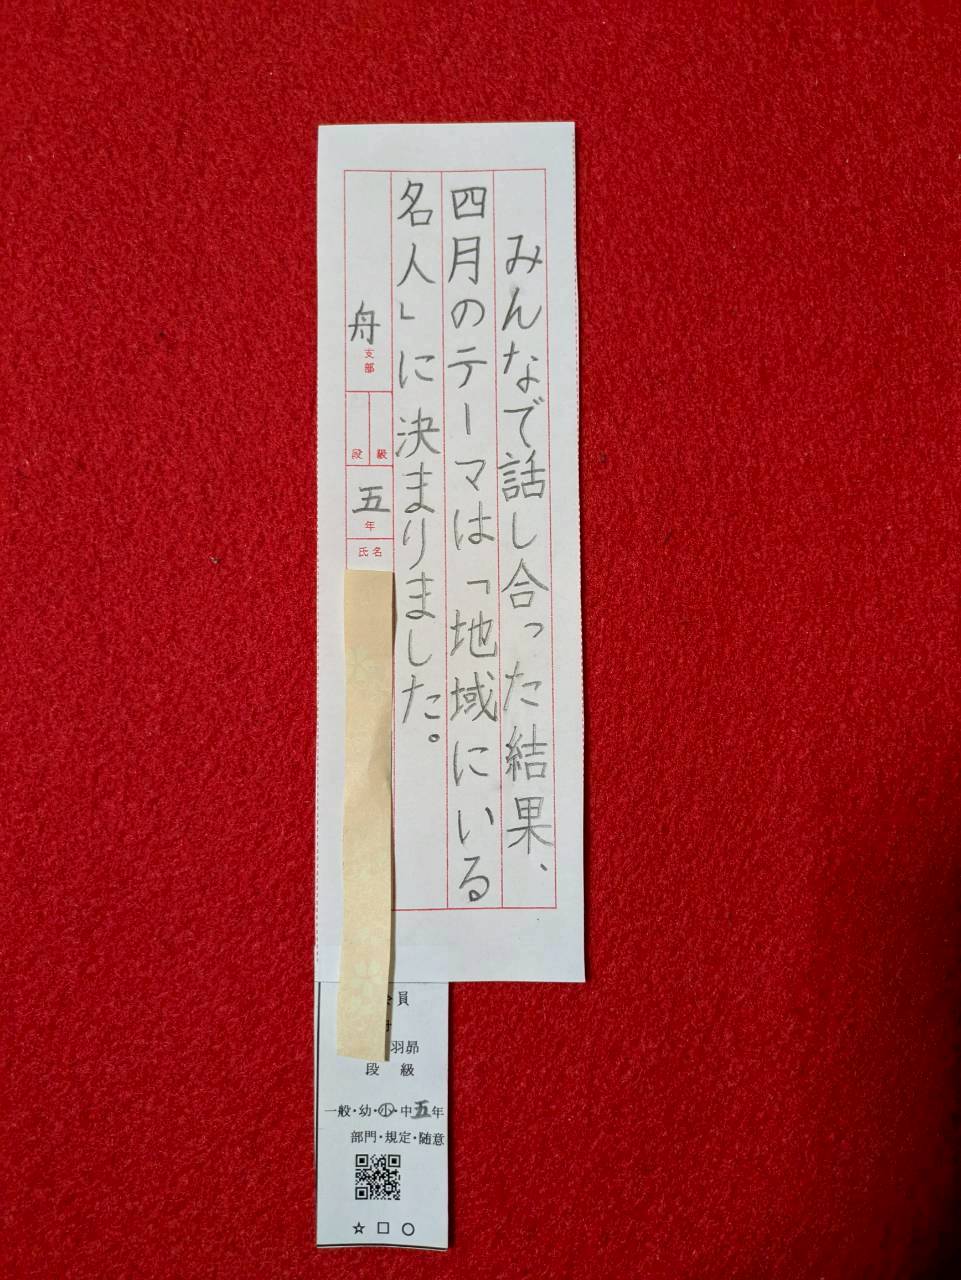 みんなで話し合った結果、
四月のテーマは「地域にいる
名人」に決まりました。
舟
支部
段 級
五
年
氏名
員
羽昴
段 級
一般・幼・小・中五年
部門・規定・随意
☆ □ ○